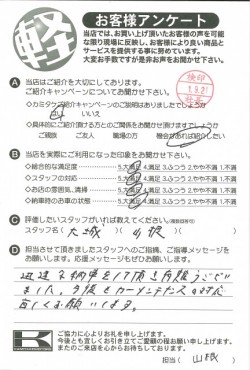 軽
お客様アンケート
当店では、お買い上げ頂いたお客様の声を可能な
限り現場に反映し、お客様により良い商品と
サービスを提供する事に努めています。
大変お手数ですが是非お声をお聞かせ下さい。
検印
1.9.21
A 当店はご紹介を大切にしております。
ご紹介キャンペーンについてお聞かせ下さい。
◇カミタケご紹介キャンペーンのご説明はありましたでしょうか
はい いいえ
◇具体的にご紹介頂ける方とのご関係をお聞かせ頂けますでしょうか
ご親族 ご友人 職場の方 機会があれば紹介したい
B 当店を実際にご利用になった印象をお聞かせ下さい。
◇総合的な満足度 5.大満足 4.満足 3.ふつう 2.やや不満 1.不満
◇スタッフの対応 5.大満足 4.満足 3.ふつう 2.やや不満 1.不満
◇お店の雰囲気、清掃 5.大満足 4.満足 3.ふつう 2.やや不満 1.不満
◇納車時のお車の状態 5.大満足 4.満足 3.ふつう 2.やや不満 1.不満
C 評価したいスタッフがいれば教えてください。
スタッフ名( 大城 )( 山根 )
D 担当させて頂きましたスタッフへのご指摘、ご指導メッセージを
お願いします。応援メッセージもぜひお願いします！
迅速な納車をして頂き有難うござい
ました。今後もカーメンテナンスの対応
宜しくお願いします。
K
ご協力に心よりお礼を申し上げます。
今後とも宜しくお引き立てご愛顧の程お願い申し上げます。
またのご来店を心からお待ちしております。
担当( )